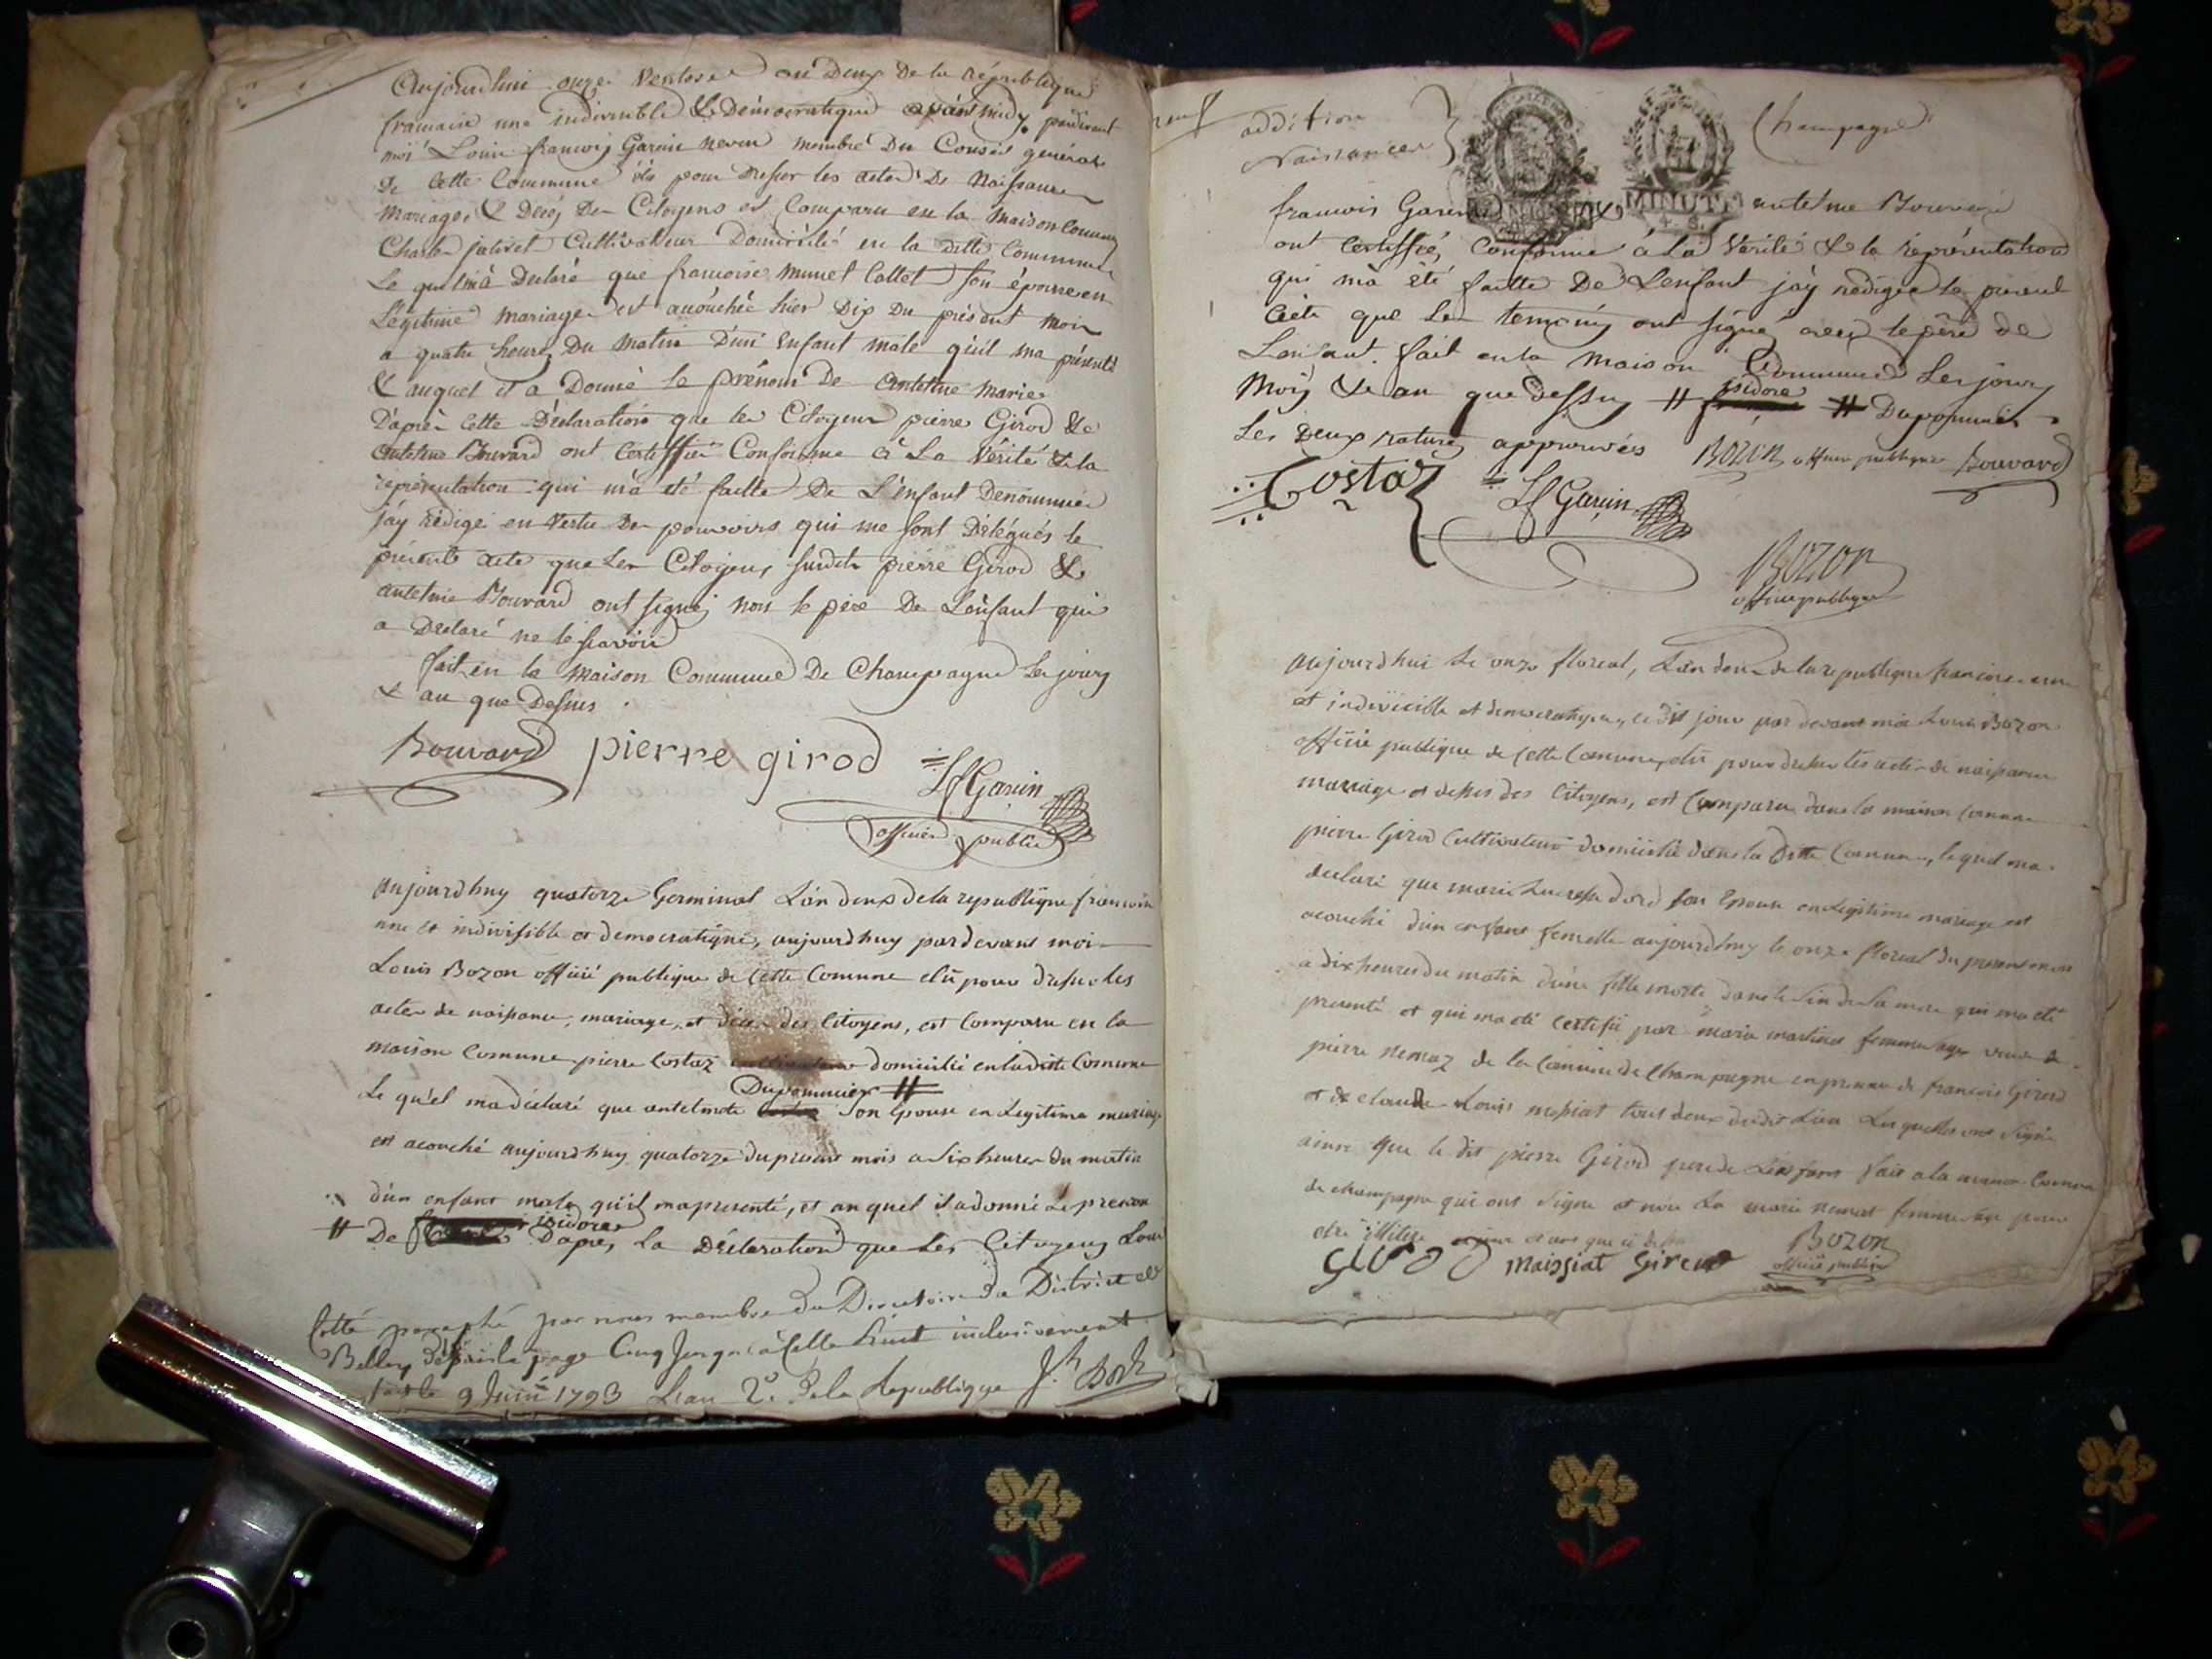 Aujourdhui onze Ventose an Deux De la république
francaise une indivisible & Démocratique avant midy pardevant
moi Louis francois Garin neveu membre Du Conseil général
De Cette Commune élu pour Dresser les actes De Naissance
Mariages & Decés Des Citoyens est Comparu en la Maison Commune
Charles jolivet Cultivateur Domicilié en la ditte Commune
Le quel m'a Declaré que francoise Munet Collet son épouse en
Légitime mariage est accouchée hier Dix Du présent Mois
a quatre heures Du Matin D'un Enfant male qu'il ma présenté
& auquel il a Donné le prénom De antelme Marie
D'après Cette Déclaration que les Citoyens pierre Girod &
antelme Bouvard ont Certiffié Conforme à La Vérité & la
représentation qui m'a été faitte De L'enfant Denommé
j'ay rédigé en Vertu Des pouvoirs qui me sont Délégués le
présente acte que Les Citoyens susdits pierre Girod &
antelme Bouvard ont signés non le père De L'enfant qui
a Declaré ne le scavoir
fait en la Maison Commune De Champagne Les jours
& an que Dessus
Bouvard pierre girod Lf Garin
officier public
aujourdhuy quatorze Germinal L'an deux de la republique francoise
une et indivisible et democratique, aujourdhuy pardevant moi
Louis Bozon officié publique de cette Comune elu pour dresser les
actes de naissance, mariage, et décès des Citoyens, est Comparu en la
maison Comune pierre Costaz domicilié en la ditte Comune
Dupommier #
Le qu'el ma déclaré que antelmete son Epouse en Legitime mariage
est acouché aujourdhuy quatorze du present mois a six heures du matin
d'un enfant male qu'il ma presenté, et au quel il a donné le prenom
isidore
# De D'apres La Déclaration que Les Citoyens Louis
Cotté paraphé par nous membre du Directoire du District de
Belley depuis la page Cinq jusqu'à Celle huit inclusivement
fait le 9 Juin 1793 L'an 2e De la Republique
addition
Naissances
Champagne
MINUTE
francois Garin & antelme Bouvard
ont Certiffié, Conforme à La Vérité & la représentation
qui m'a été faitte De L'enfant j'ay rédigée le présent
acte que Les temoins ont signé avec le père de
L'enfant. fait en la maison Commune Les jour,
Moi, & an que dessus # isidore # Dupommier
Les Deux ratures approuvées Bozon officier publique Bouvard
Costaz Lf Garin
Bozon
officie publique
aujourdhui le onze floreal, L'an deux de la republique francoise une
et indivicible et democratique, ce dit jour par devant moi Louis Bozon
officié publique de cette Comune, elu pour dresser les actes de naissance
mariage et des Citoyens, est Comparu dans la maison Comune
pierre Girod Cultivateur domicilié dans la ditte Comune, lequel ma
declaré que marie son Epouse en Legitime mariage est
acouché d'un enfant femelle aujourdhuy le onze floreal du present mois
a dix heures du matin d'une fille morte dans le sin de sa mere qui ma été
presenté et qui ma été certifié par maria martinet femme veuve de
pierre nemoz de la Comune de Champagne en presence de francois Girerd
et de claude Louis massiat tous deux du dit Lieu Lesquelles ont signé
ainsi que le dit pierre Girod pere de L'enfant fait a la maison Comune
de champagne qui ont signé et non La marie
etre illitere
Girod maissiat Girerd Bozon
officié publique